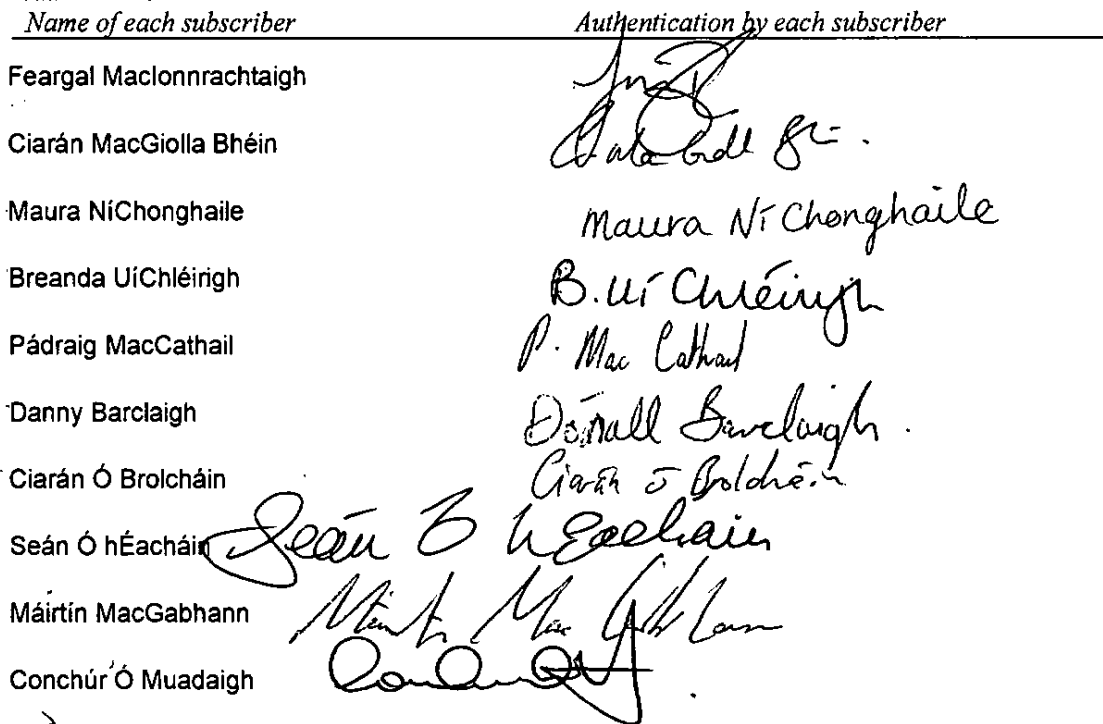 Name of each subscriber Authentication by each subscriber
Feargal MacIonnrachtaigh
Ciarán MacGiolla Bhéin
Maura NíChonghaile Maura Ní Chonghaile
Breanda UíChléirigh B. Uí Chléirigh
Pádraig MacCathail P. Mac Cathail
Danny Barclaigh Dónall Barclaigh.
Ciarán Ó Brolcháin Ciarán Ó Brolcháin
Seán Ó hÉacháin Seán Ó hEachain
Máirtín MacGabhann Máirtín Mac
Conchúr Ó Muadaigh